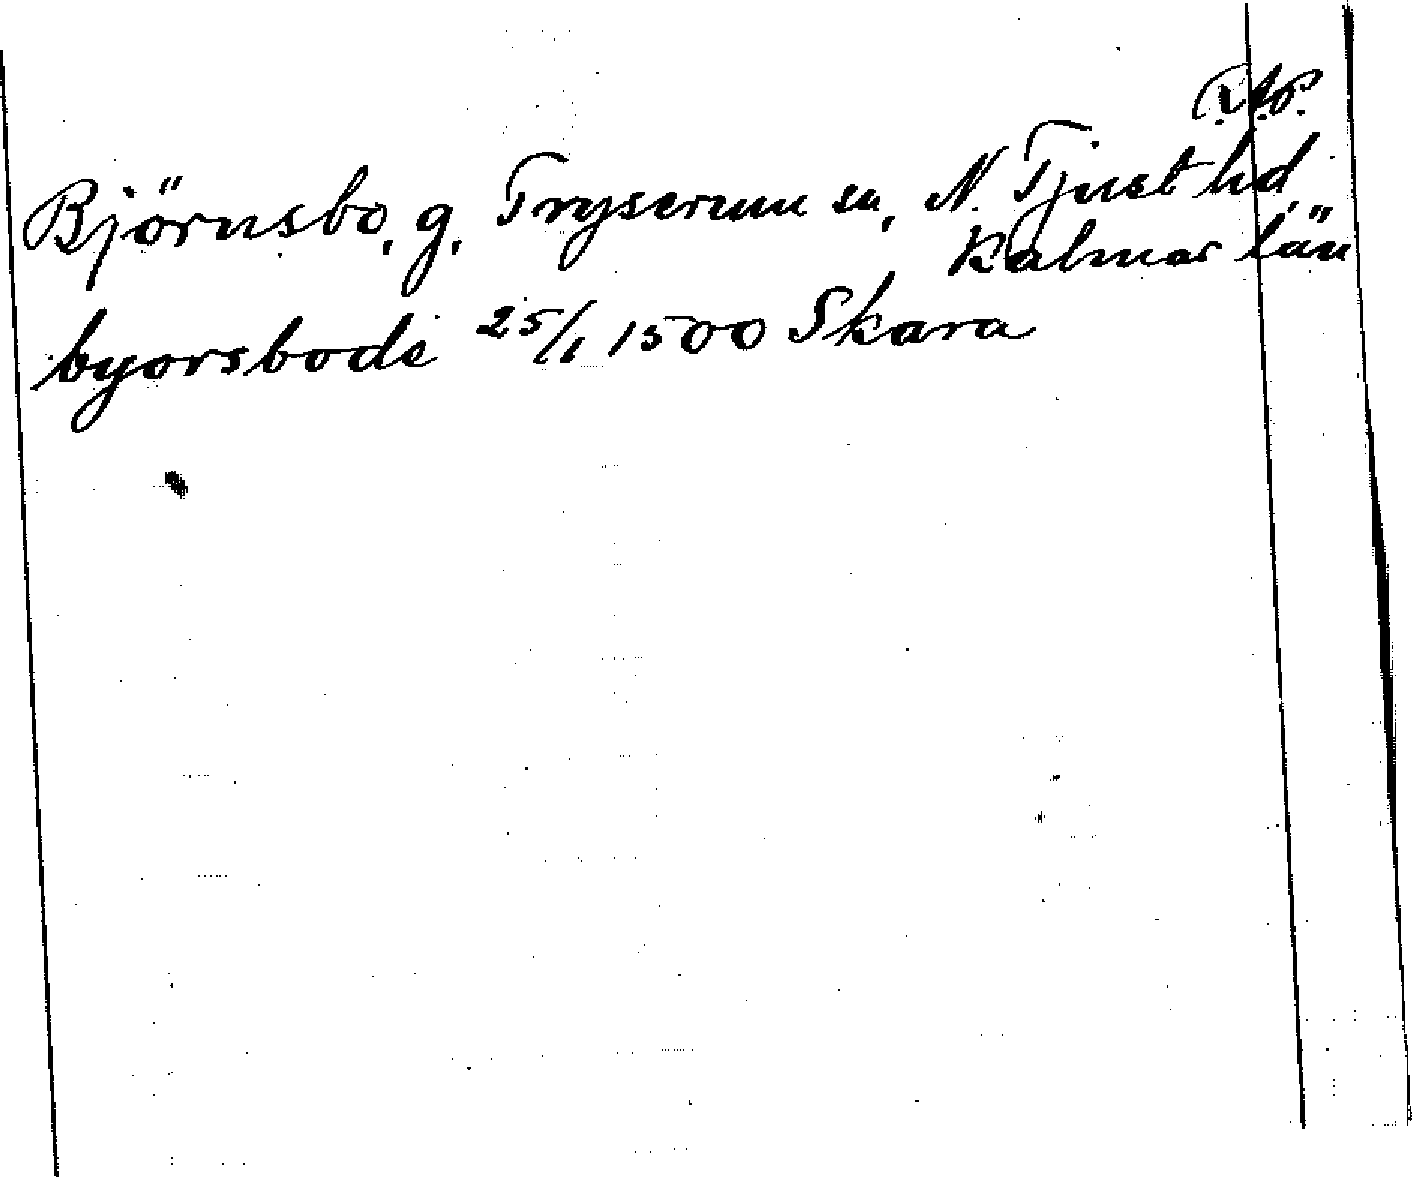 R.A.P.
Björnsbo, g, Tryserum sn, N. Tjust hd,
Kalmar län
byorsbode 25/1 1500 Skara